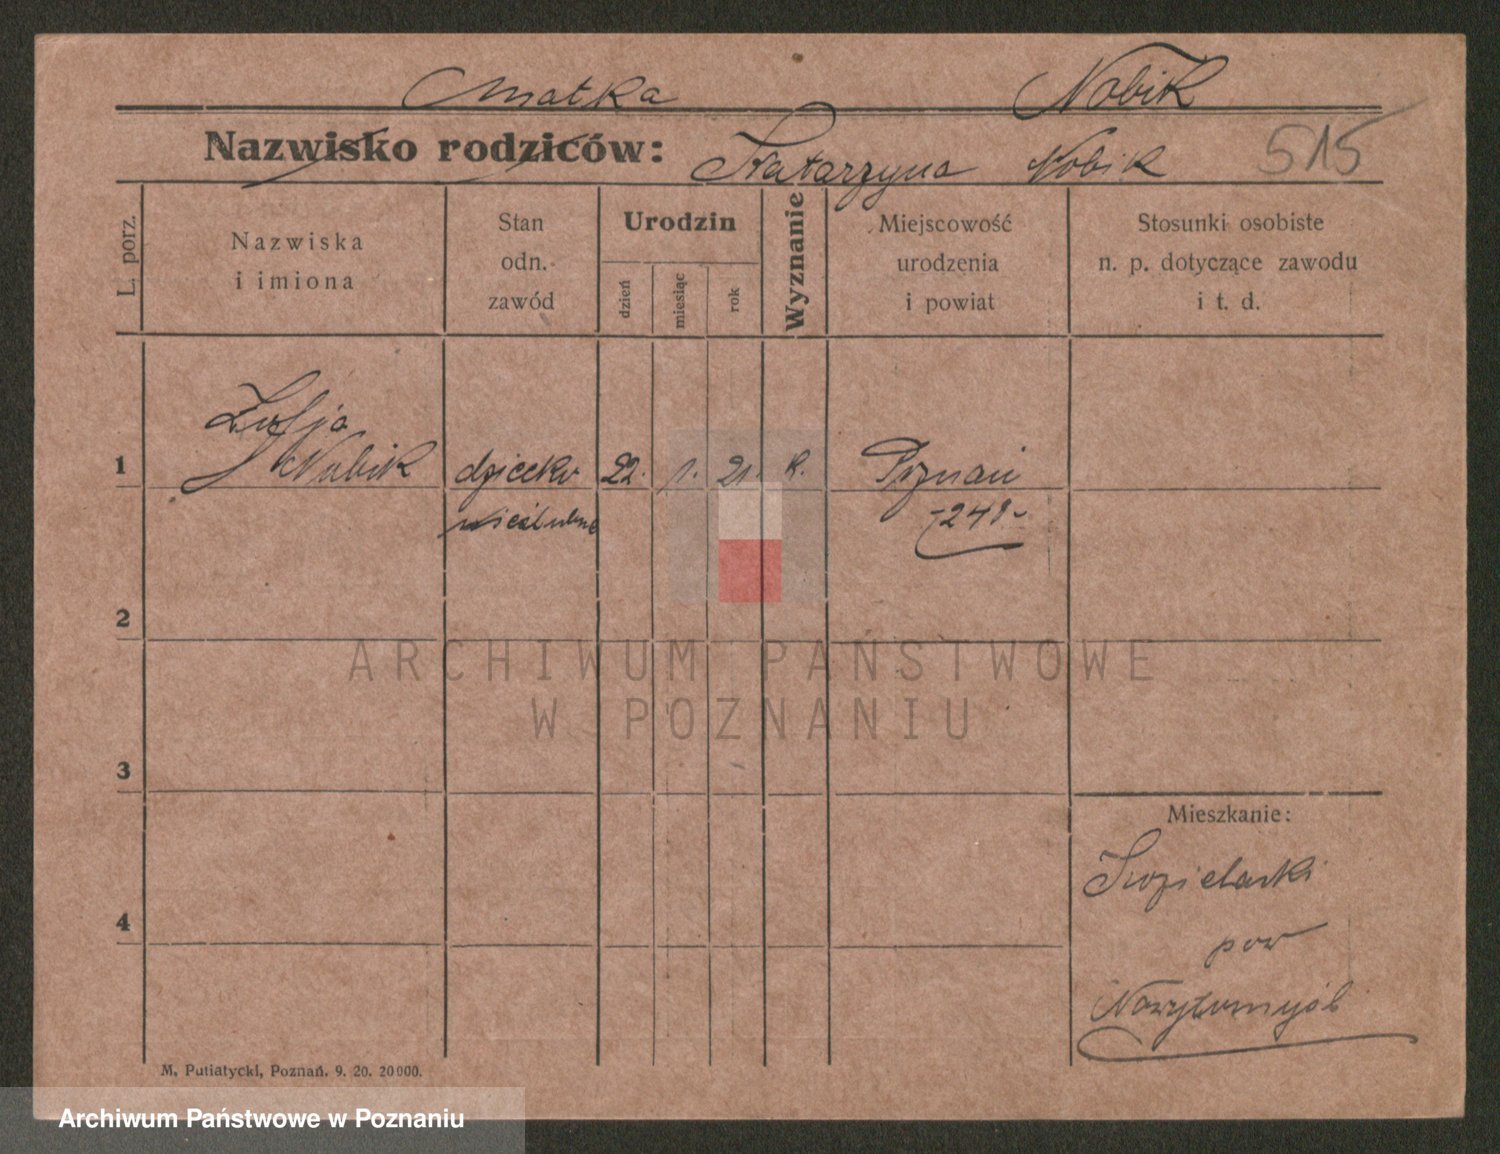 Matka Nobik
Nazwisko rodziców: Katarzyna Nobik 515
L. porz.
Nazwiska
i imiona
Stan
odn.
zawód
Urodzin
dzień
miesiąc
rok
Wyznanie
Miejscowość
urodzenia
i powiat
Stosunki osobiste
n. p. dotyczące zawodu
i t. d.
Zofja
1 Nobik dziecko 22. 1. 21. k. Poznań
nieślubne -241-
2
3
4
Mieszkanie:
pow
Nowytomyśl
M. Putiatycki, Poznań. 9. 20. 20000.
ARCHIWUM PAŃSTWOWE
W POZNANIU
Archiwum Państwowe w Poznaniu